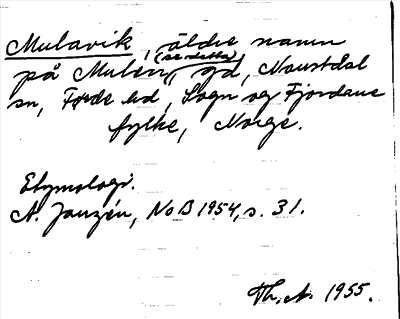 Mulavik, äldre namn
på Mulen (se detta), gd, Naustdal
sn, Førde hd, Sogn og Fjordane
fylke, Norge.
Etymologi.
A. Janzén, NoB 1954, s. 31.
Th. A. 1955.